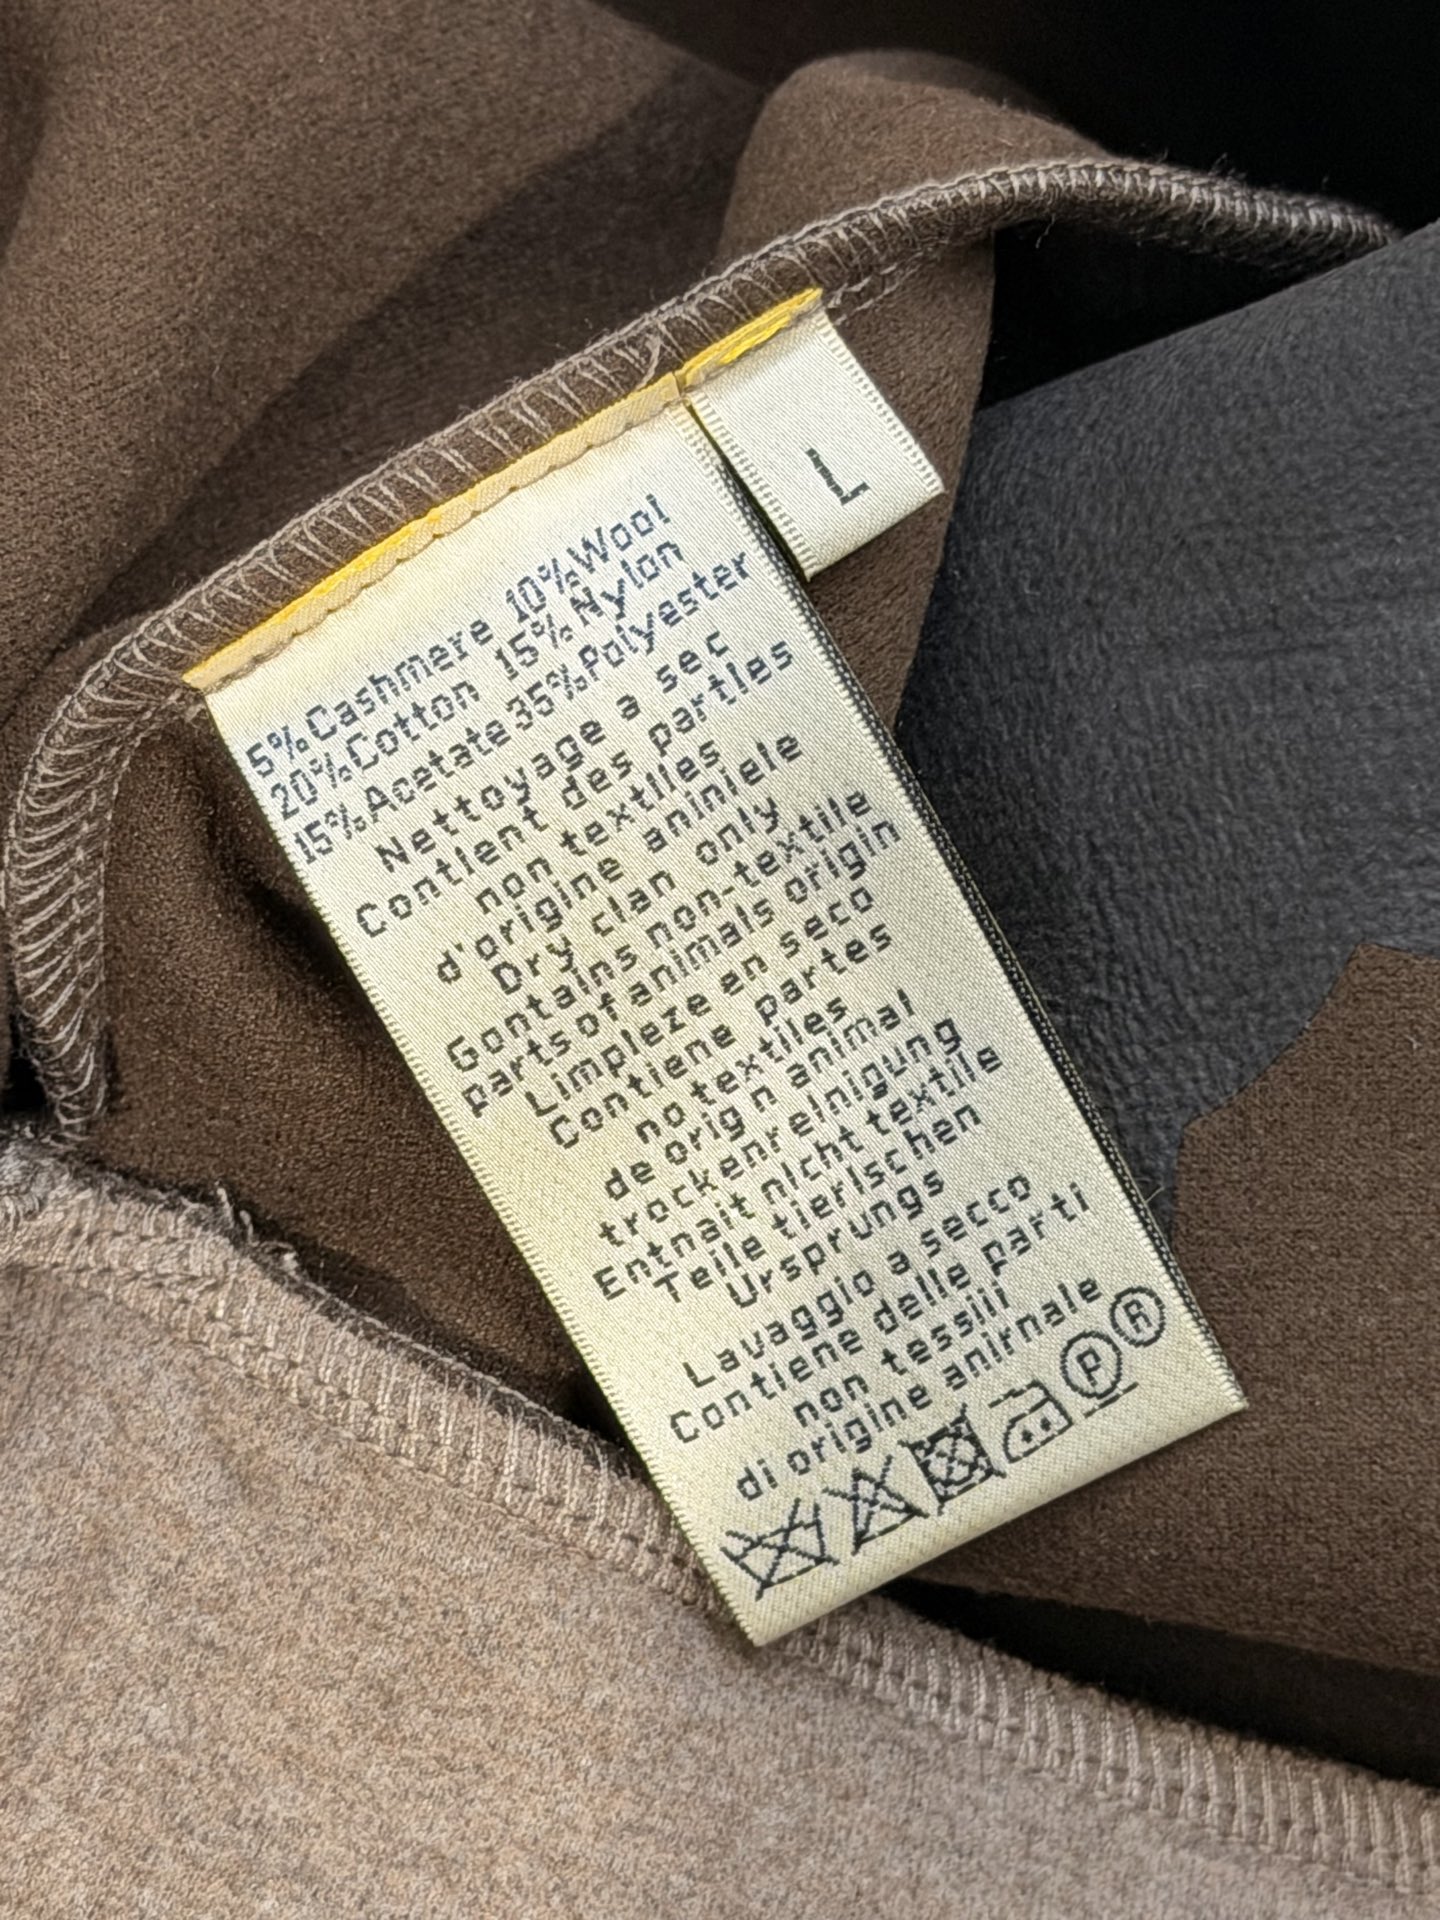 L
5%Cashmere 10%Wool
20%Cotton 15%Nylon
15%Acetate 35%Polyester
Nettoyage a sec
Contient des partles
non textlles
d'origine aniniele
Dry clan only
Gontalns non-textile
parts of animals origin
Limpleze en seco
Contiene partes
no textiles
de orig n animal
trockenrelnigung
Entnait nlcht textile
Teile tierlschen
Ursprungs
Lavaggio a secco
Contiene delle parti
non tessili
di origine anirnale
P R